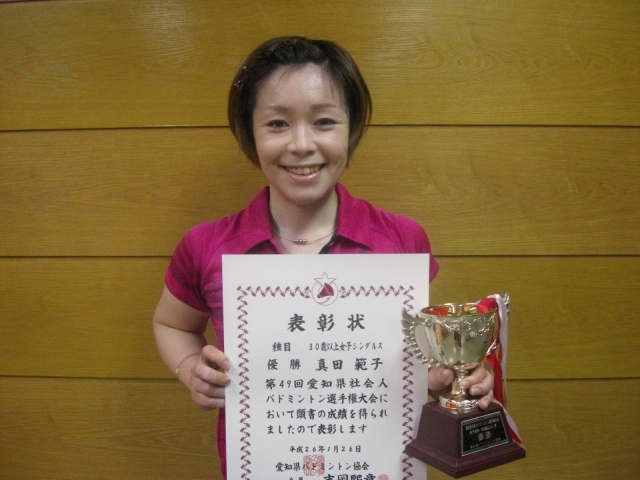 表彰状
種目 30歳以上女子シングルス
優勝 真田 範子
第49回愛知県社会人
バドミントン選手権大会に
おいて頭書の成績を得られ
ましたので表彰します
平成26年1月26日
愛知県バドミントン協会
優勝